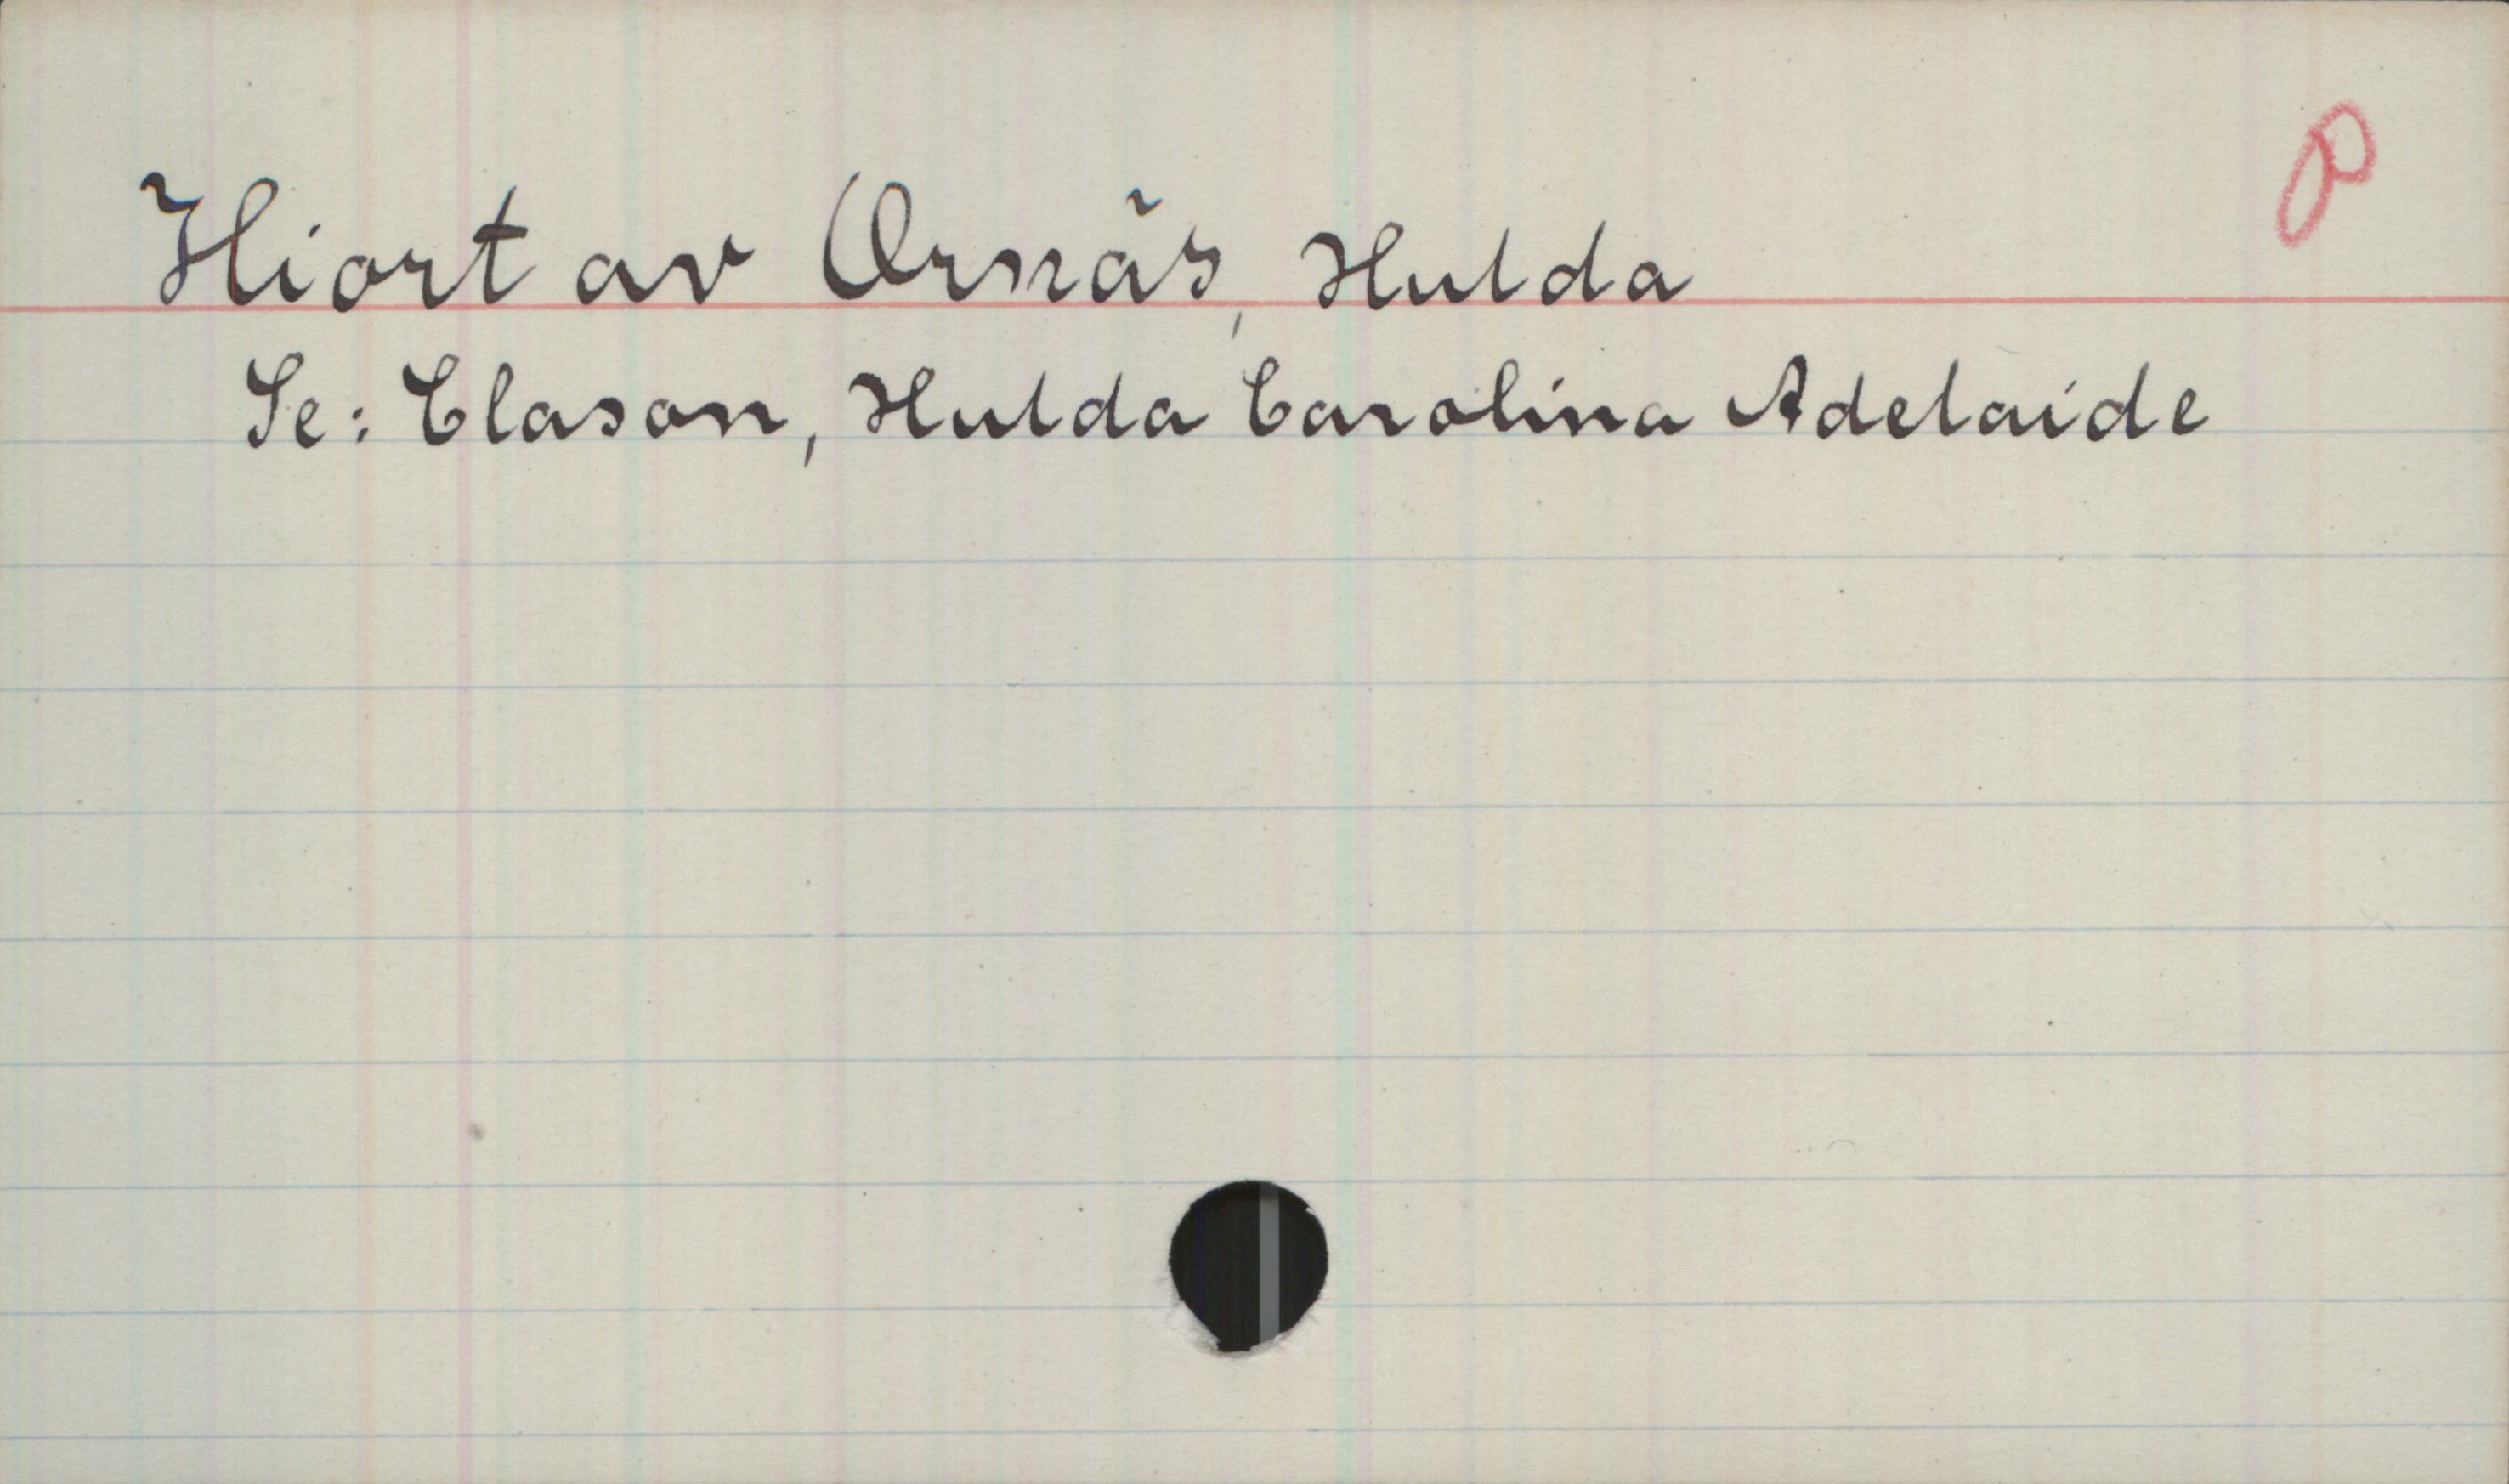 Hiort av Ornäs, Hulda
Se: Clason, Hulda Carolina Adelaide